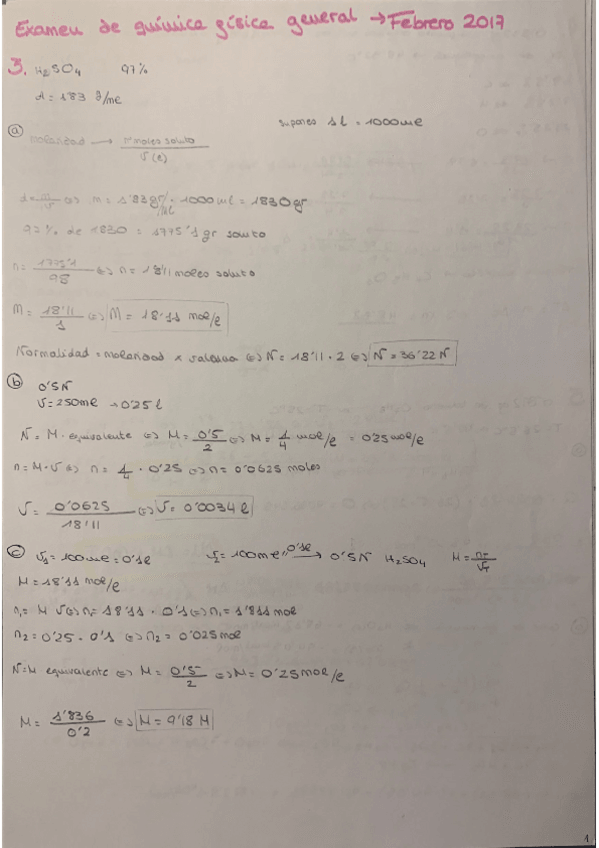 Examen de química física general → Febrero 2017
3. H₂SO₄ 97%
d = 1'83 g/ml
supones 1 l = 1000 ml
(a) molaridad → nº moles soluto / V (l)
d = m/v ⇔ m = 1'83 gr/ml · 1000 ml = 1830 gr
97% de 1830 = 1775'1 gr soluto
n = 1775'1 / 98 ⇔ n = 18'11 moles soluto
M = 18'11 / 1 ⇔ M = 18'11 mol/l
Normalidad = molaridad x valencia ⇔ N = 18'11 · 2 ⇔ N = 36'22 N
(b) 0'5N
V = 250ml → 0'25 l
N = M · equivalente ⇔ M = 0'5/2 ⇔ M = 1/4 mol/l = 0'25 mol/l
n = M · V ⇔ n = 1/4 · 0'25 ⇔ n = 0'0625 moles
V = 0'0625 / 18'11 ⇔ V = 0'0034 l
(c) V₁ = 100ml = 0'1l V₂ = 100ml, 0'1l → 0'5N H₂SO₄ M = nT/VT
M = 18'11 mol/l
n₁ = M V ⇔ n₁ = 18'11 · 0'1 ⇔ n₁ = 1'811 mol
n₂ = 0'25 · 0'1 ⇔ n₂ = 0'025 mol
N = M equivalente ⇔ M = 0'5/2 ⇔ M = 0'25 mol/l
M = 1'836 / 0'2 ⇔ M = 9'18 M
1